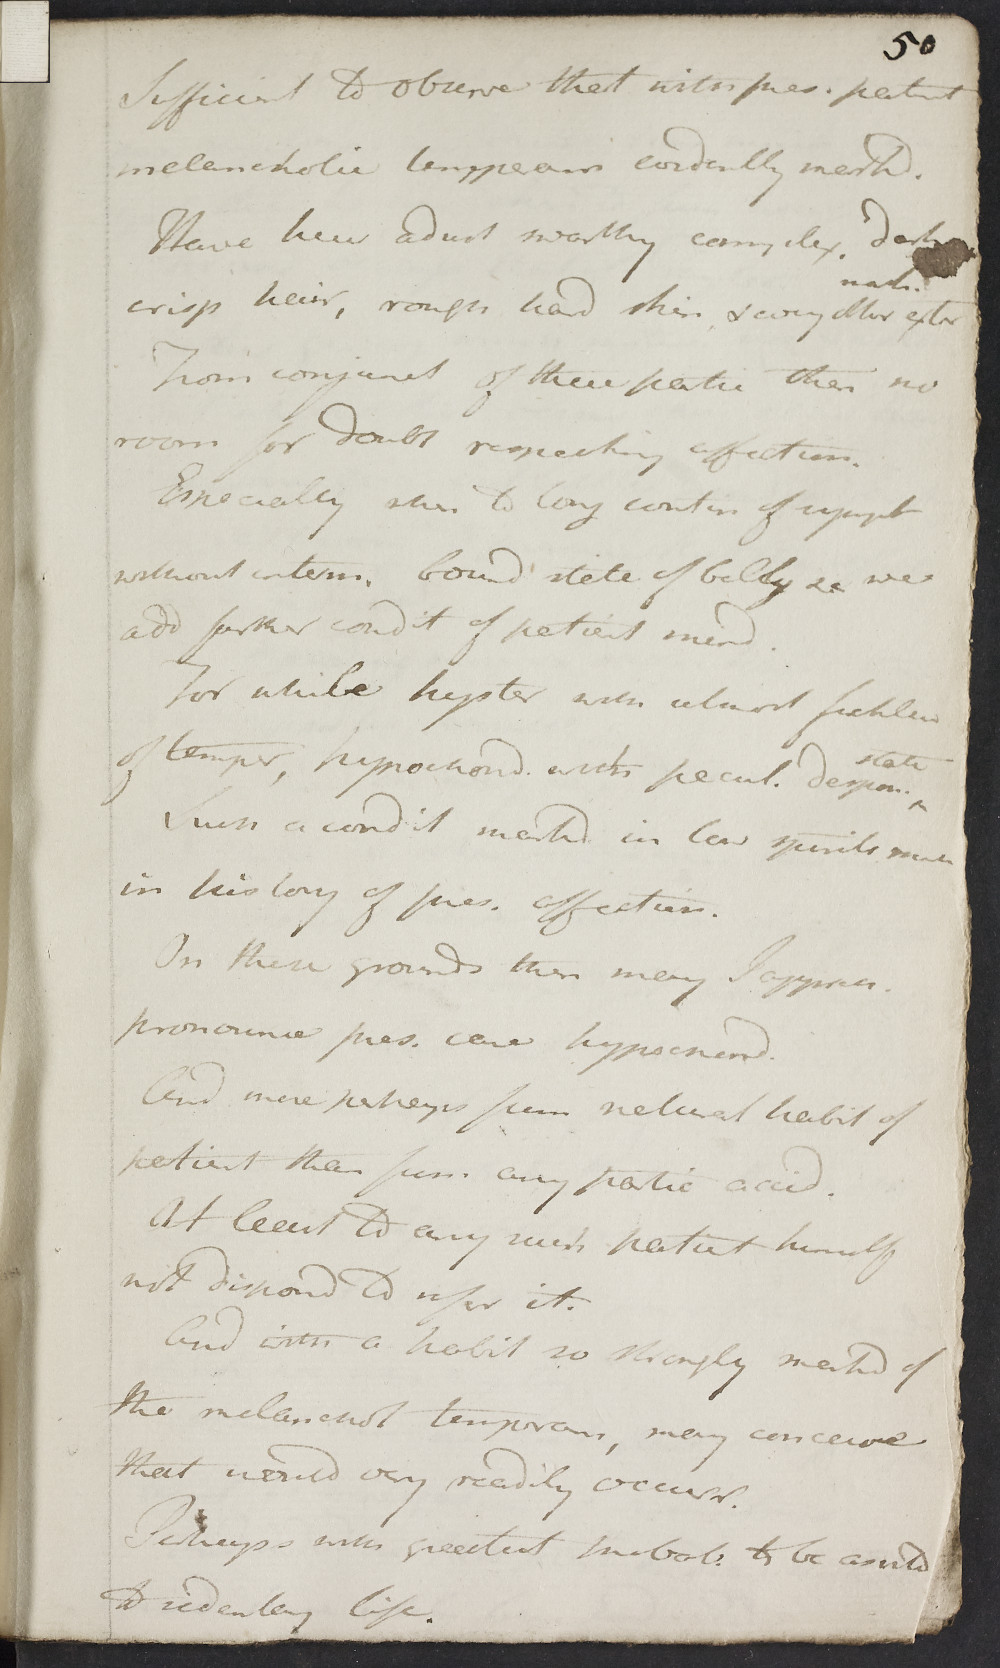 50
Sufficient to observe that with pres. patient
melancholic temperam evidently markd.
Have here adust swarthy complex. dark
crisp hair, rough hard skin & every other
mark.
From conjunct of these partic then no
room for doubt respecting affection.
Especially when to long contin of sympt
without interm. bound state of belly &c we
add farther condit of patient mind.
For while hyster with almost
of temper, hypochond. with pecul. despon.
state
Such a condit markd in low spirits
in history of pres. affection.
On these grounds then may I
pronounce pres. case hypochond.
And more perhaps from natural habit of
patient than from any partic accid.
At least to any such patient himself
not disposd to refer it.
And with a habit so strongly markd of
the melanchol temperam, may conceive
that would very readily occurr.
Perhaps with greatest probab. to be
to sedentary life.